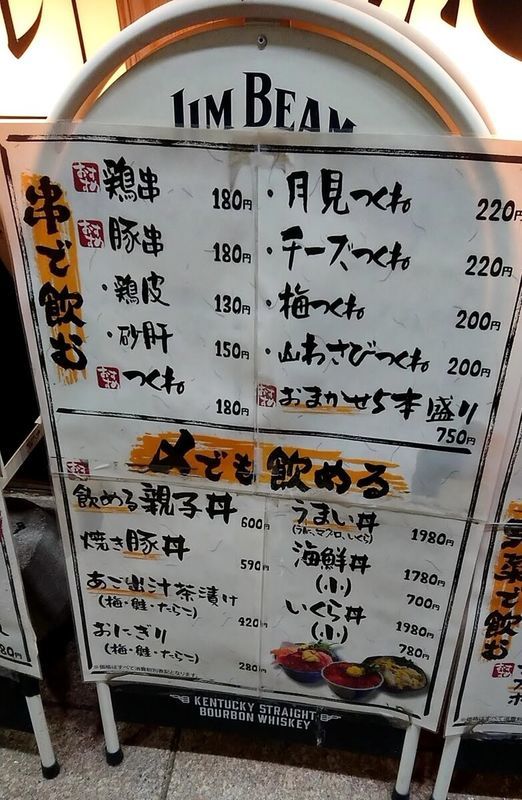 JIM BEAM
串で飲む
おすすめ 鶏串 180円
おすすめ 豚串 180円
・鶏皮 130円
・砂肝 150円
おすすめ つくね 180円
・月見つくね 220円
・チーズつくね 220円
・梅つくね 200円
・山わさびつくね 200円
おすすめ おまかせ5本盛り
750円
〆でも飲める
飲める親子丼 600円
焼き豚丼 590円
あご出汁茶漬け
(梅・鮭・たらこ) 420円
おにぎり
(梅・鮭・たらこ) 280円
うまい丼 1980円
(うに、マグロ、いくら)
海鮮丼 1780円
(小) 700円
いくら丼 1980円
(小) 780円
※価格はすべて消費税別表記となります。
KENTUCKY STRAIGHT
BOURBON WHISKEY
菜で飲む